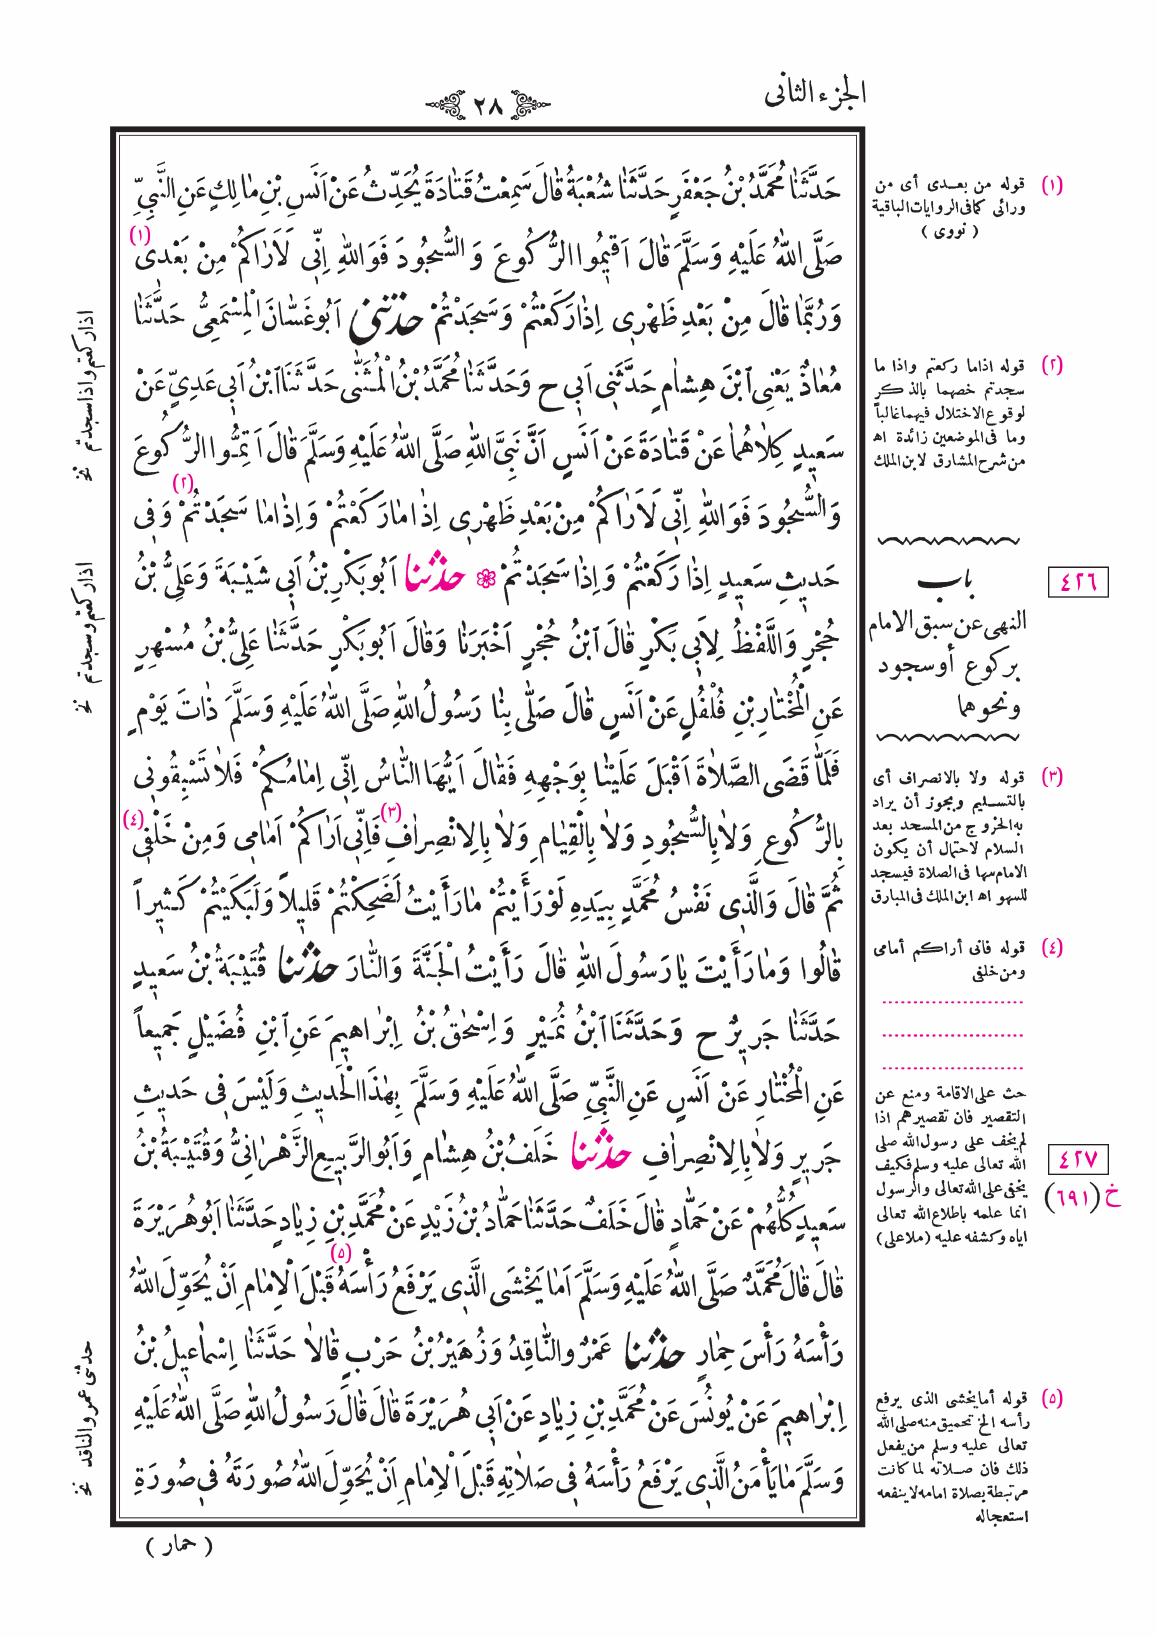 الجزء الثانى
٢٨
حَدَّثَنَا مُحَمَّدُ بْنُ جَعْفَرٍ حَدَّثَنَا شُعْبَةُ قَالَ سَمِعْتُ قَتَادَةَ يُحَدِّثُ عَنْ اَنَسِ بْنِ مَالِكٍ عَنِ النَّبِىِّ
صَلَّى اللّٰهُ عَلَيْهِ وَسَلَّمَ قَالَ اَقيمُوا الرُّكُوعَ وَالسُّجُودَ فَوَاللّٰهِ اِنّى لَاَرَاكُمْ مِنْ بَعْدى (١)
وَرُبَّمَا قَالَ مِنْ بَعْدِ ظَهْرى اِذَا رَكَعْتُمْ وَسَجَدْتُمْ حَدَّثَنى اَبُو غَسَّانَ الْمِسْمَعِىُّ حَدَّثَنَا
مُعَاذٌ يَعْنِى ابْنَ هِشَامٍ حَدَّثَنى اَبى ح وَحَدَّثَنَا مُحَمَّدُ بْنُ الْمُثَنَّى حَدَّثَنَا ابْنُ اَبى عَدِىٍّ عَنْ
سَعيدٍ كِلَاهُمَا عَنْ قَتَادَةَ عَنْ اَنَسٍ اَنَّ نَبِىَّ اللّٰهِ صَلَّى اللّٰهُ عَلَيْهِ وَسَلَّمَ قَالَ اَتِمُّوا الرُّكُوعَ
وَالسُّجُودَ فَوَاللّٰهِ اِنّى لَاَرَاكُمْ مِنْ بَعْدِ ظَهْرى اِذَا مَا رَكَعْتُمْ وَاِذَا مَا سَجَدْتُمْ (٢) وَفى
حَديثِ سَعيدٍ اِذَا رَكَعْتُمْ وَاِذَا سَجَدْتُمْ ❁ حَدَّثَنَا اَبُو بَكْرِ بْنُ اَبى شَيْبَةَ وَعَلِىُّ بْنُ
حُجْرٍ وَاللَّفْظُ لِاَبى بَكْرٍ قَالَ ابْنُ حُجْرٍ اَخْبَرَنَا وَقَالَ اَبُو بَكْرٍ حَدَّثَنَا عَلِىُّ بْنُ مُسْهِرٍ
عَنِ الْمُخْتَارِ بْنِ فُلْفُلٍ عَنْ اَنَسٍ قَالَ صَلَّى بِنَا رَسُولُ اللّٰهِ صَلَّى اللّٰهُ عَلَيْهِ وَسَلَّمَ ذَاتَ يَوْمٍ
فَلَمَّا قَضَى الصَّلَاةَ اَقْبَلَ عَلَيْنَا بِوَجْهِهِ فَقَالَ اَيُّهَا النَّاسُ اِنّى اِمَامُكُمْ فَلَا تَسْبِقُونى
بِالرُّكُوعِ وَلَا بِالسُّجُودِ وَلَا بِالْقِيَامِ وَلَا بِالْاِنْصِرَافِ (٣) فَاِنّى اَرَاكُمْ اَمَامى وَمِنْ خَلْفى (٤)
ثُمَّ قَالَ وَالَّذى نَفْسُ مُحَمَّدٍ بِيَدِهِ لَوْ رَأَيْتُمْ مَا رَأَيْتُ لَضَحِكْتُمْ قَليلاً وَلَبَكَيْتُمْ كَثيراً
قَالُوا وَمَا رَأَيْتَ يَا رَسُولَ اللّٰهِ قَالَ رَأَيْتُ الْجَنَّةَ وَالنَّارَ حَدَّثَنَا قُتَيْبَةُ بْنُ سَعيدٍ
حَدَّثَنَا جَريرٌ ح وَحَدَّثَنَا ابْنُ نُمَيْرٍ وَاِسْحٰقُ بْنُ اِبْرَاهيمَ عَنِ ابْنِ فُضَيْلٍ جَميعاً
عَنِ الْمُخْتَارِ عَنْ اَنَسٍ عَنِ النَّبِىِّ صَلَّى اللّٰهُ عَلَيْهِ وَسَلَّمَ بِهٰذَا الْحَديثِ وَلَيْسَ فى حَديثِ
جَريرٍ وَلَا بِالْاِنْصِرَافِ حَدَّثَنَا خَلَفُ بْنُ هِشَامٍ وَاَبُو الرَّبيعِ الزَّهْرَانِىُّ وَقُتَيْبَةُ بْنُ
سَعيدٍ كُلُّهُمْ عَنْ حَمَّادٍ قَالَ خَلَفٌ حَدَّثَنَا حَمَّادُ بْنُ زَيْدٍ عَنْ مُحَمَّدِ بْنِ زِيَادٍ حَدَّثَنَا اَبُو هُرَيْرَةَ
قَالَ قَالَ مُحَمَّدٌ صَلَّى اللّٰهُ عَلَيْهِ وَسَلَّمَ اَمَا يَخْشَى الَّذى يَرْفَعُ رَأْسَهُ (٥) قَبْلَ الْاِمَامِ اَنْ يُحَوِّلَ اللّٰهُ
رَأْسَهُ رَأْسَ حِمَارٍ حَدَّثَنَا عَمْرٌو النَّاقِدُ وَزُهَيْرُ بْنُ حَرْبٍ قَالَا حَدَّثَنَا اِسْمَاعيلُ بْنُ
اِبْرَاهيمَ عَنْ يُونُسَ عَنْ مُحَمَّدِ بْنِ زِيَادٍ عَنْ اَبى هُرَيْرَةَ قَالَ قَالَ رَسُولُ اللّٰهِ صَلَّى اللّٰهُ عَلَيْهِ
وَسَلَّمَ مَا يَأْمَنُ الَّذى يَرْفَعُ رَأْسَهُ فى صَلَاتِهِ قَبْلَ الْاِمَامِ اَنْ يُحَوِّلَ اللّٰهُ صُورَتَهُ فى صُورَةِ
( حمار )
(١) قوله من بعدى أى من
ورائى كما فى الروايات الباقية
( نووى )
(٢) قوله اذا ما ركعتم واذا ما
سجدتم خصهما بالذكر
لوقوع الاختلال فيهما غالباً
وما فى الموضعين زائدة اه
من شرح المشارق لابن الملك
٤٢٦
باب
النهى عن سبق الامام
بركوع أو سجود
ونحوهما
(٣) قوله ولا بالانصراف أى
بالتسليم ويجوز أن يراد
به الخروج من المسجد بعد
السلام لاحتمال أن يكون
الامام سها فى الصلاة فيسجد
للسهو اه ابن الملك فى المبارق
(٤) قوله فانى أراكم أمامى
ومن خلفى
حث على الاقامة ومنع عن
التقصير فان تقصيرهم اذا
لم يخف على رسول الله صلى
الله تعالى عليه وسلم فكيف
يخفى على الله تعالى والرسول
انما علمه باطلاع الله تعالى
اياه وكشفه عليه (ملا على)
٤٢٧
خ (٦٩١)
(٥) قوله أما يخشى الذى يرفع
رأسه الخ تحميق منه صلى الله
تعالى عليه وسلم من يفعل
ذلك فان صلاته لما كانت
مرتبطة بصلاة امامه لا ينفعه
استعجاله
اذا ركعتم واذا سجدتم نخ
اذا ركعتم وسجدتم نخ
حدثنى عمرو الناقد نخ